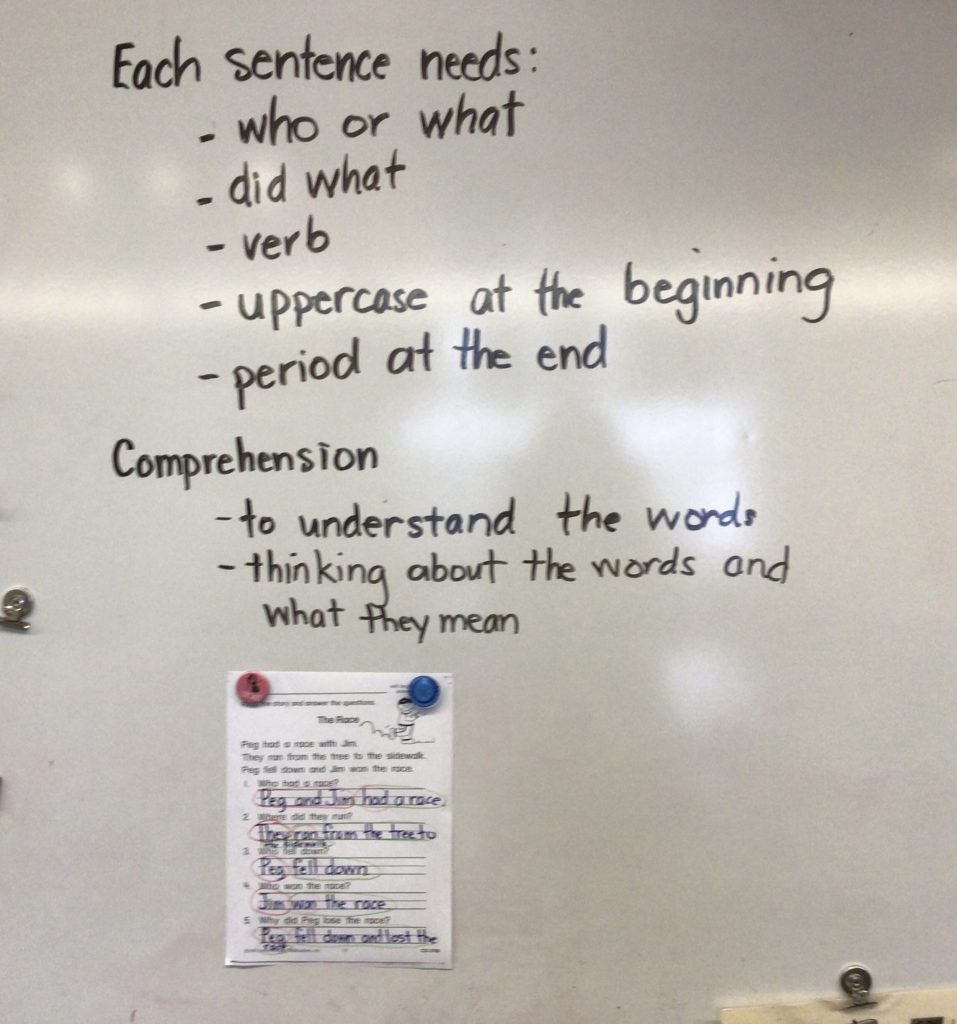 Each sentence needs:
- who or what
- did what
- verb
- uppercase at the beginning
- period at the end
Comprehension
- to understand the words
- thinking about the words and
what they mean
story and answer the questions.
The Race
Peg had a race with Jim.
They ran from the tree to the sidewalk.
Peg fell down and Jim won the race.
1. Who had a race?
Peg and Jim had a race.
2. Where did they run?
They ran from the tree to
the sidewalk
3. Who fell down?
Peg fell down
4. Who won the race?
Jim won the race
5. Why did Peg lose the race?
Peg fell down and lost the
race